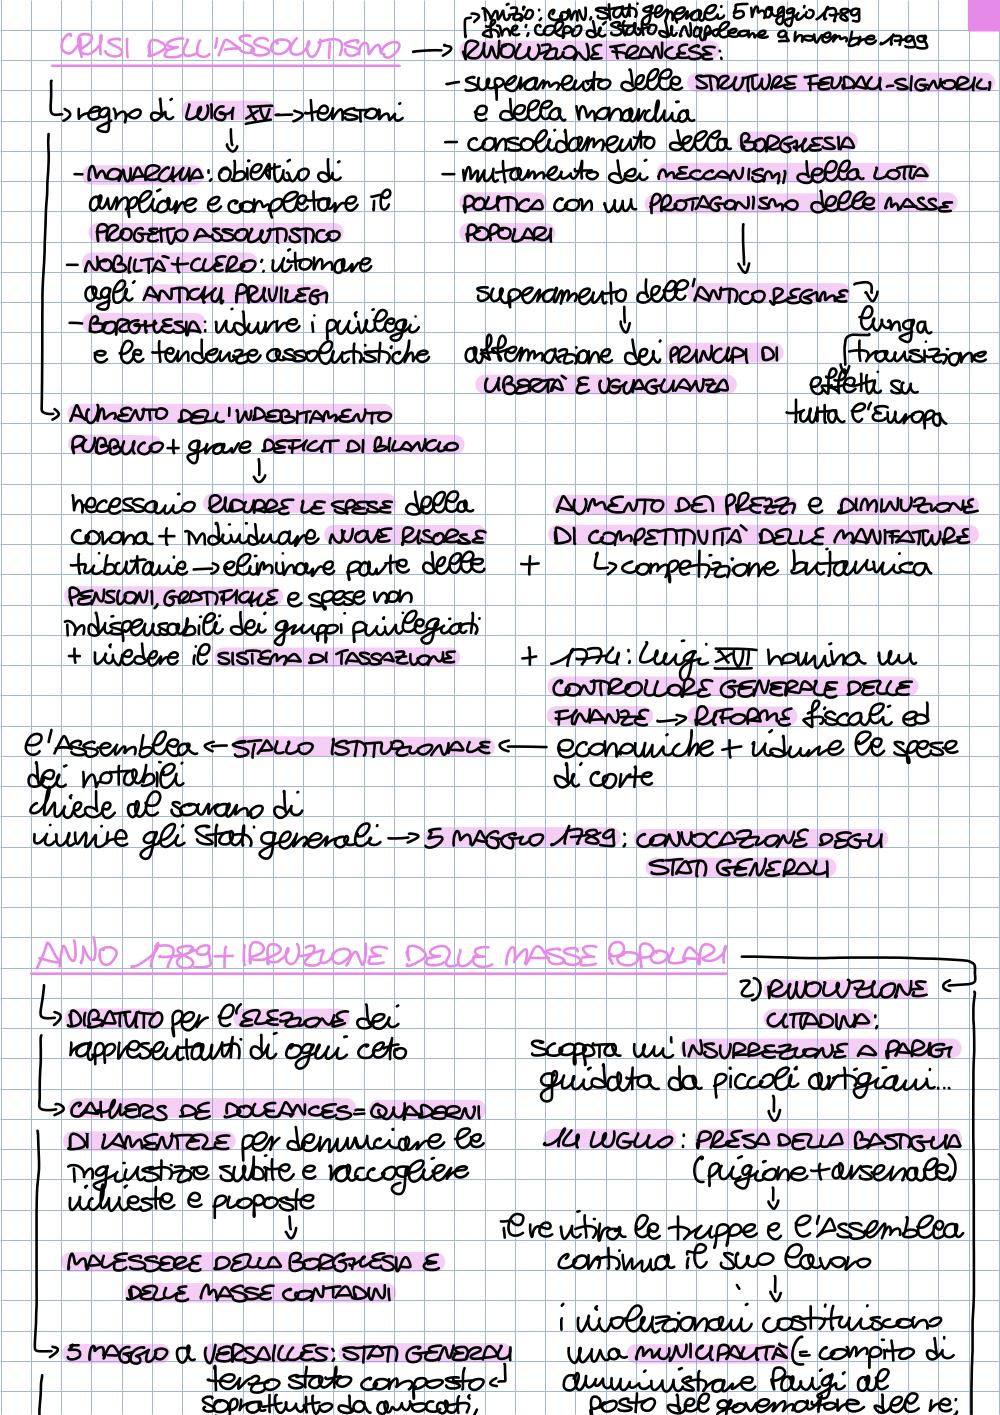 CRISI DELL'ASSOLUTISMO →
↳ regno di LUIGI XV → tensioni
↓
- MONARCHIA: obiettivo di
ampliare e completare il
PROGETTO ASSOLUTISTICO
- NOBILTÀ + CLERO: ritornare
agli ANTICHI PRIVILEGI
- BORGHESIA: ridurre i privilegi
e le tendenze assolutistiche
→ AUMENTO DELL'INDEBITAMENTO
PUBBLICO + grave DEFICIT DI BILANCIO
↓
necessario RIDURRE LE SPESE della
corona + individuare NUOVE RISORSE
tributarie → eliminare parte delle
PENSIONI, GRATIFICHE e spese non
indispensabili dei gruppi privilegiati
+ rivedere il SISTEMA DI TASSAZIONE
inizio: conv. stati generali 5 maggio 1789
fine: colpo di Stato di Napoleone 9 novembre 1799
RIVOLUZIONE FRANCESE:
- superamento delle STRUTTURE FEUDALI-SIGNORILI
e della monarchia
- consolidamento della BORGHESIA
- mutamento dei MECCANISMI della LOTTA
POLITICA con un PROTAGONISMO delle MASSE
POPOLARI
↓
superamento dell'ANTICO REGIME
↓
affermazione dei PRINCIPI DI
LIBERTÀ E UGUAGLIANZA
lunga
transizione
effetti su
tutta l'Europa
AUMENTO DEI PREZZI e DIMINUZIONE
DI COMPETITIVITÀ DELLE MANIFATTURE
+ ↳ competizione britannica
+ 1774: Luigi XVI nomina un
CONTROLLORE GENERALE DELLE
FINANZE → RIFORME fiscali ed
economiche + ridurre le spese
di corte
l'Assemblea ← STALLO ISTITUZIONALE ←
dei notabili
chiede al sovrano di
riunire gli Stati generali → 5 MAGGIO 1789: CONVOCAZIONE DEGLI
STATI GENERALI
ANNO 1789 + IRRUZIONE DELLE MASSE POPOLARI
↳ DIBATTITO per l'ELEZIONE dei
rappresentanti di ogni ceto
→ CAHIERS DE DOLEANCES = QUADERNI
DI LAMENTELE per denunciare le
ingiustizie subite e raccogliere
richieste e proposte
↓
MALESSERE DELLA BORGHESIA E
DELLE MASSE CONTADINI
→ 5 MAGGIO a VERSAILLES: STATI GENERALI
terzo stato composto
soprattutto da avvocati,
2) RIVOLUZIONE
CITTADINA:
scoppia un'INSURREZIONE A PARIGI
guidata da piccoli artigiani...
↓
14 LUGLIO: PRESA DELLA BASTIGLIA
(prigione + arsenale)
↓
il re ritira le truppe e l'Assemblea
continua il suo lavoro
↓
i rivoluzionari costituiscono
una MUNICIPALITÀ (= compito di
amministrare Parigi al
posto del governatore del re;